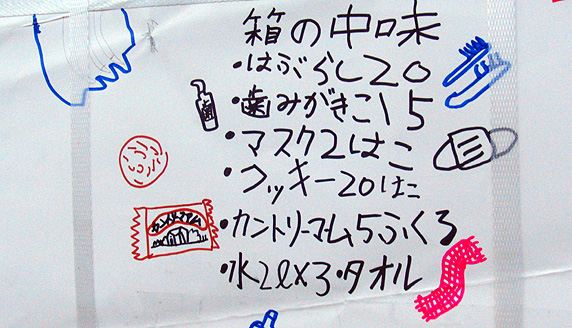 箱の中味
・はぶらし20
・歯みがきこ15
歯
・マスク2はこ
・クッキー20はこ
・カントリーマーム5ふくろ
カントリーマアム
・水2ℓ×3・タオル